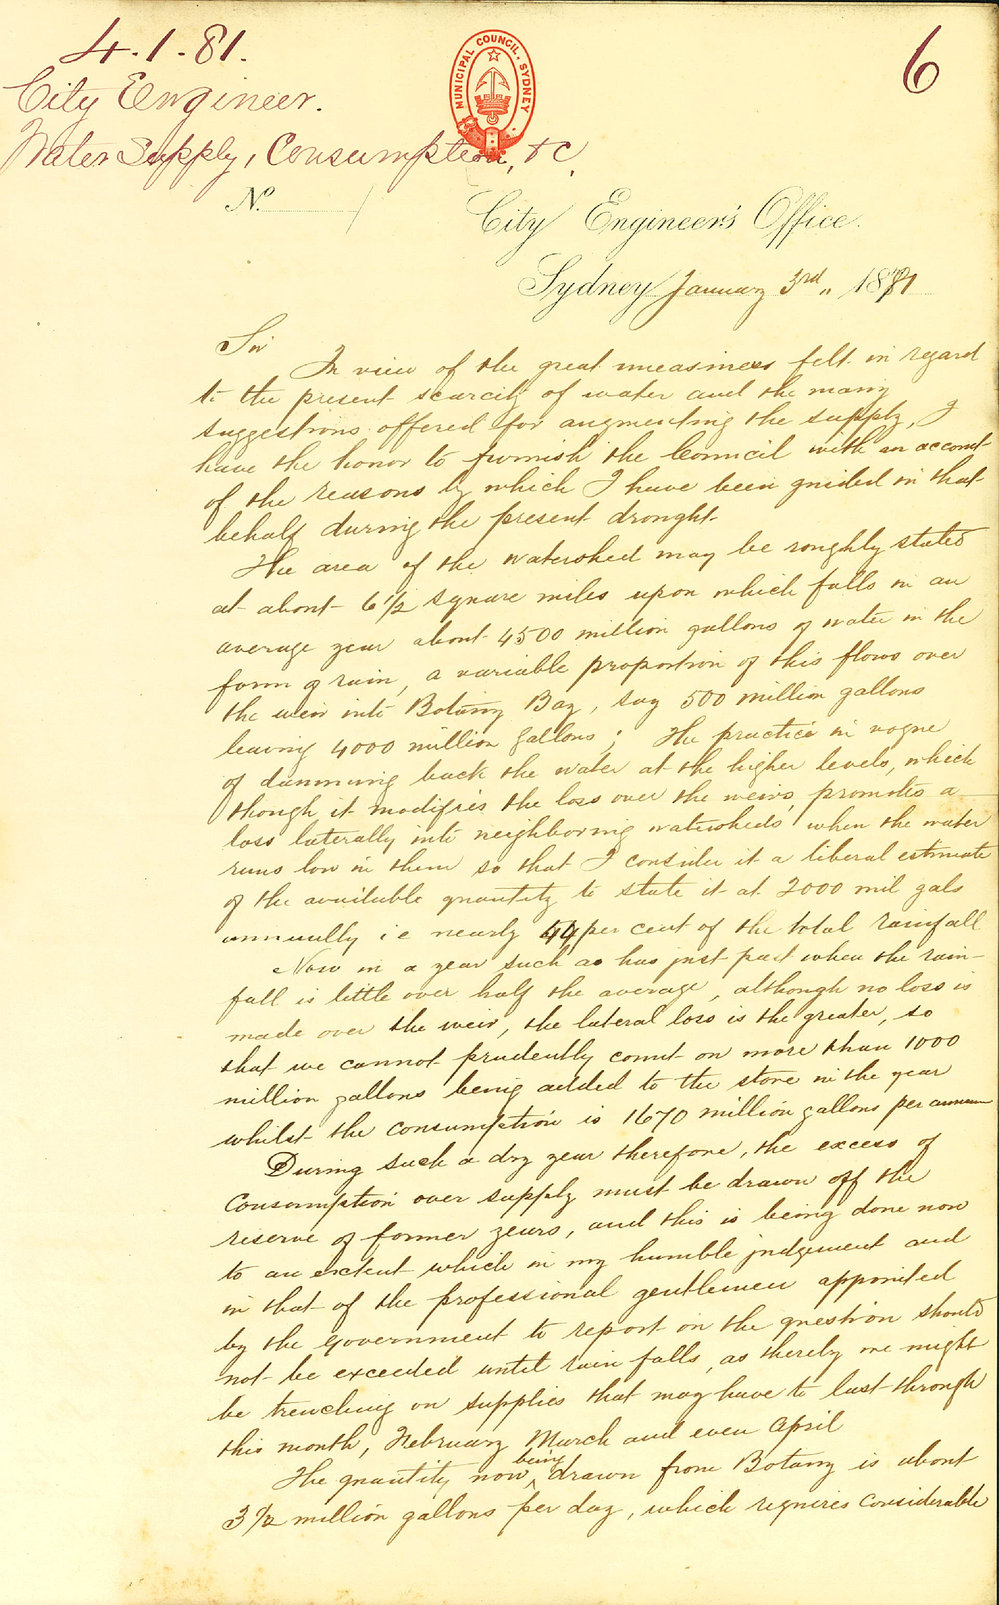 4.1.81.
6
City Engineer.
Water Supply, Consumption, &c.
MUNICIPAL COUNCIL. SYDNEY
No.
City Engineer's Office.
Sydney January 3rd „ 1881
Sir
In view of the great uneasiness felt in regard
to the present scarcity of water and the many
suggestions offered for augmenting the supply, I
have the honor to furnish the Council with an account
of the reasons by which I have been guided in that
behalf during the present drought.
The area of the watershed may be roughly stated
at about 6 1/2 square miles upon which falls in an
average year about 4500 million gallons of water in the
form of rain, a variable proportion of this flows over
the weir into Botany Bay, say 500 million gallons
leaving 4000 million gallons; The practice in vogue
of damming back the water at the higher levels, which
though it modifies the loss over the weirs, promotes a
loss laterally into neighboring watersheds when the water
runs low in them so that I consider it a liberal estimate
of the available quantity to state it at 2000 mil gals
annually i e nearly 44 per cent of the total rainfall
Now in a year such as has just past when the rain-
fall is little over half the average, although no loss is
made over the weir, the lateral loss is the greater, so
that we cannot prudently count on more than 1000
million gallons being added to the store in the year
whilst the consumption is 1670 million gallons per annum
During such a dry year therefore, the excess of
Consumption over supply must be drawn off the
reserve of former years, and this is being done now
to an extent which in my humble judgement and
in that of the professional gentlemen appointed
by the Government to report on the question should
not be exceeded until rain falls, as thereby we might
be trenching on supplies that may have to last through
this month, February March and even April
The quantity now being drawn from Botany is about
3 1/2 million gallons per day, which requires considerable